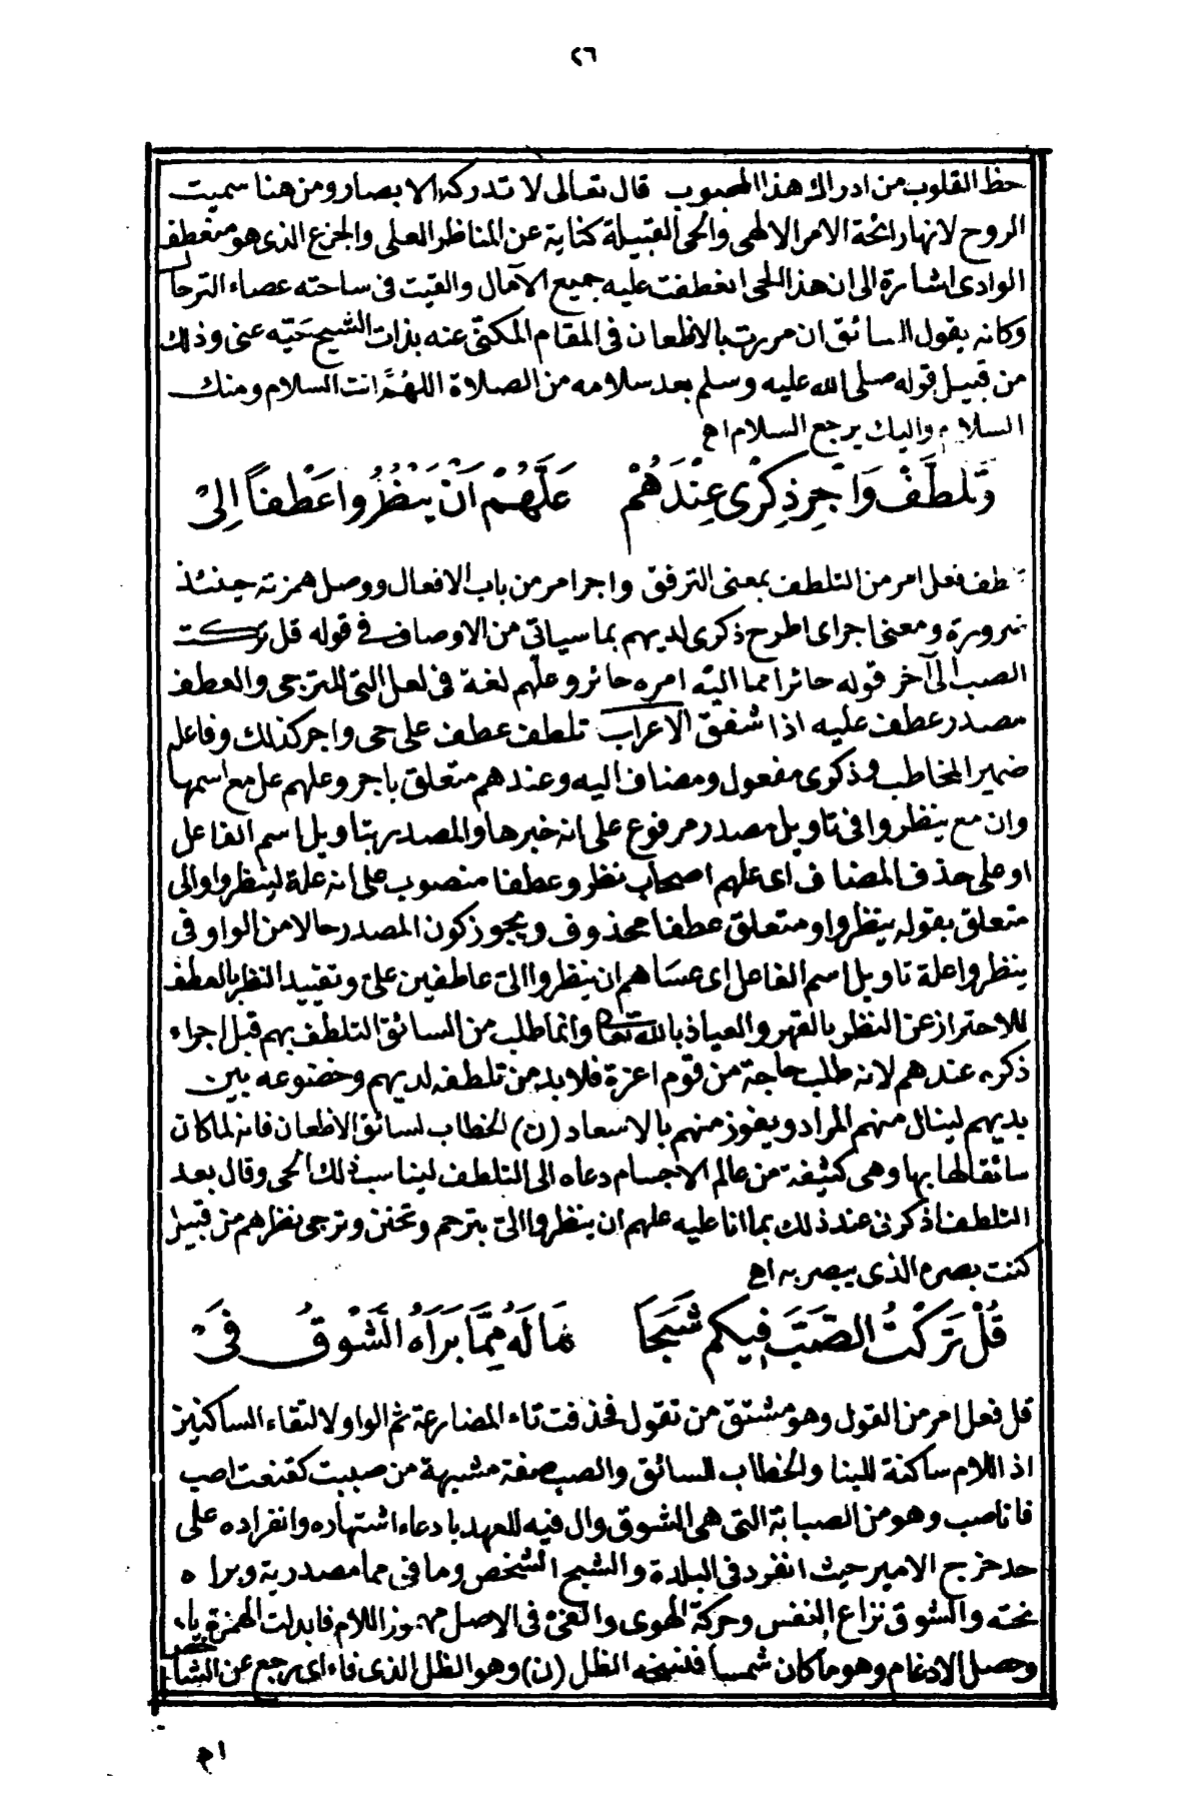 ٢٦
حظ القلوب من ادراك هذا المحبوب قال تعالى لا تدركه الابصار ومن هنا سميت
الروح لانها رائحة الامر الالهى والحى القبيلة كناية عن المناظر العلى والجزع الذى هو منعطف
الوادى اشارة الى ان هذا الحى انعطفت عليه جميع الآمال والقيت فى ساحته عصاء الترحال
وكانه يقول للسائق ان مررت بالاظعان فى المقام المكنى عنه بذات الشيح حيّه عنى وذلك
من قبيل قوله صلى الله عليه وسلم بعد سلامه من الصلاة اللهمّ انت السلام ومنك
السلام واليك يرجع السلام اه
وَتَلَطَّفْ وَاجْرِ ذِكْرِى عِنْدَهُمْ عَلَّهُمْ اَنْ يَنْظُرُوا عَطْفاً اِلىْ
تلطف فعل امر من التلطف بمعنى الترفق واجر امر من باب الافعال ووصل همزته حينئذ
ضرورة ومعنى اجر اى اطرح ذكرى لديهم بما سياتى من الاوصاف فى قوله قل تركت
الصب الى آخر قوله حائرا مما اليه امره حائر وعلهم لغة فى لعل التى للترجى والعطف
مصدر عطف عليه اذا شفق الاعراب تلطف عطف على حى واجر كذلك وفاعله
ضمير المخاطب وذكرى مفعول ومضاف اليه وعندهم متعلق باجر وعلهم عل مع اسمها
وان مع ينظروا فى تاويل مصدر مرفوع على انه خبرها والمصدر بتاويل اسم الفاعل
او على حذف المضاف اى علهم اصحاب نظر وعطفا منصوب على انه علة لينظروا والى
متعلق بقوله ينظروا ومتعلق عطفا محذوف ويجوز كون المصدر حالا من الواو فى
ينظروا علة تاويل اسم الفاعل اى عساهم ان ينظروا الىّ عاطفين علىّ وتقييد النظر بالعطف
للاحتراز عن النظر بالقهر والعياذ بالله تعالى وانما طلب من السائق التلطف بهم قبل اجراء
ذكره عندهم لانه طلب حاجة من قوم اعزة فلا بد من تلطفه لديهم وخضوعه بين
يديهم لينال منهم المراد ويفوز منهم بالاسعاد (ن) الخطاب لسائق الاظعان فانه لما كان
سائقا لها بها وهى كثيفة من عالم الاجسام دعاه الى التلطف ليناسب ذلك الحى وقال بعد
التلطف اذكرنى عند ذلك بما انا عليه علهم ان ينظروا الىّ بترحم وتحنن وترجى نظرهم من قبيل
كنت بصره الذى يبصر به اه
قُلْ تَرَكْتُ الصَّبَّ فِيكُم شَبَحاً مَا لَهُ مِمَّا بَرَاهُ الشَّوْقُ فَىْ
قل فعل امر من القول وهو مشتق من تقول فحذفت تاء المضارعة ثم الواو لالتقاء الساكنين
اذ اللام ساكنة للبنا والخطاب للسائق والصب صفة مشبهة من صببت كقنعت اصب
فانا صب وهو من الصبابة التى هى الشوق وال فيه للعهد بادعاء اشتهاره وانفراده على
حد خرج الامير حيث انفرد فى البلدة والشبح الشخص وما فى مما مصدرية وبراه
نحته والشوق نزاع النفس وحركة الهوى والفئ فى الاصل مهموز اللام فابدلت الهمزة ياء
وحصل الادغام وهو ما كان شمسا فنسخه الظل (ن) وهو الظل الذى فاء اى رجع عن الشاخص
اه